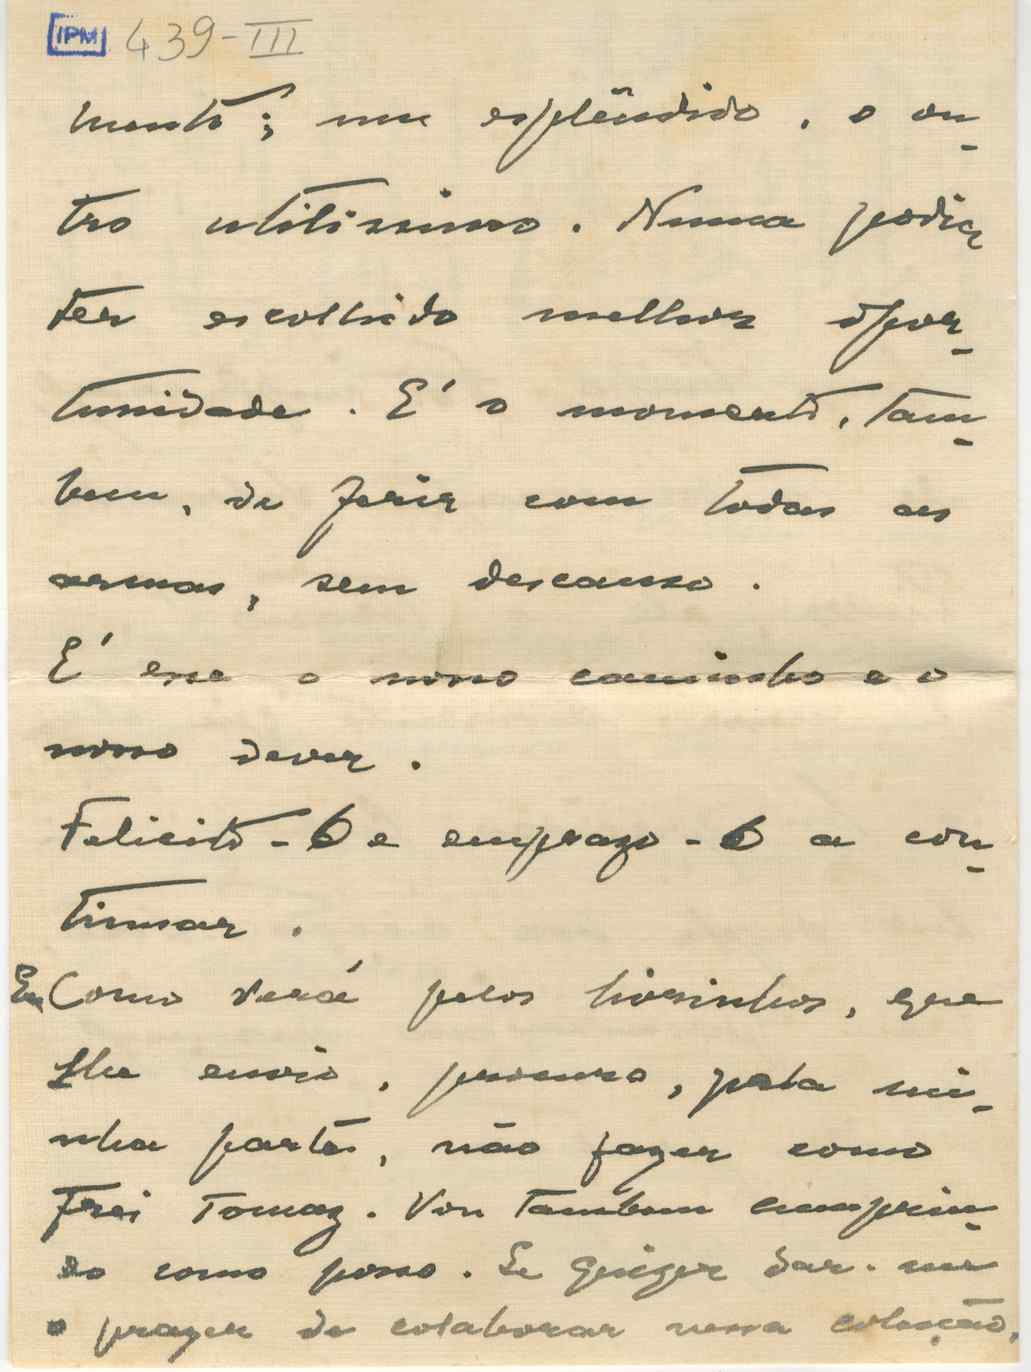 IPM 439-III
mento; um esplêndido, o ou-
tro utilissimo. Nunca podia
ter escolhido melhor opor-
tunidade. E' o momento, tam-
bem, de ferir com todas as
armas, sem descanso.
E' esse o nosso caminho e o
nosso dever.
Felicito-o e emprazo-o a con-
tinuar.
Como verá pelos livrinhos, que
lhe envio, procuro, pela mi-
nha parte, não fazer como
Frei Tomaz. Vou tambem cumprin-
do como posso. Se quizer dar-me
o prazer de colaborar nessa colecção,